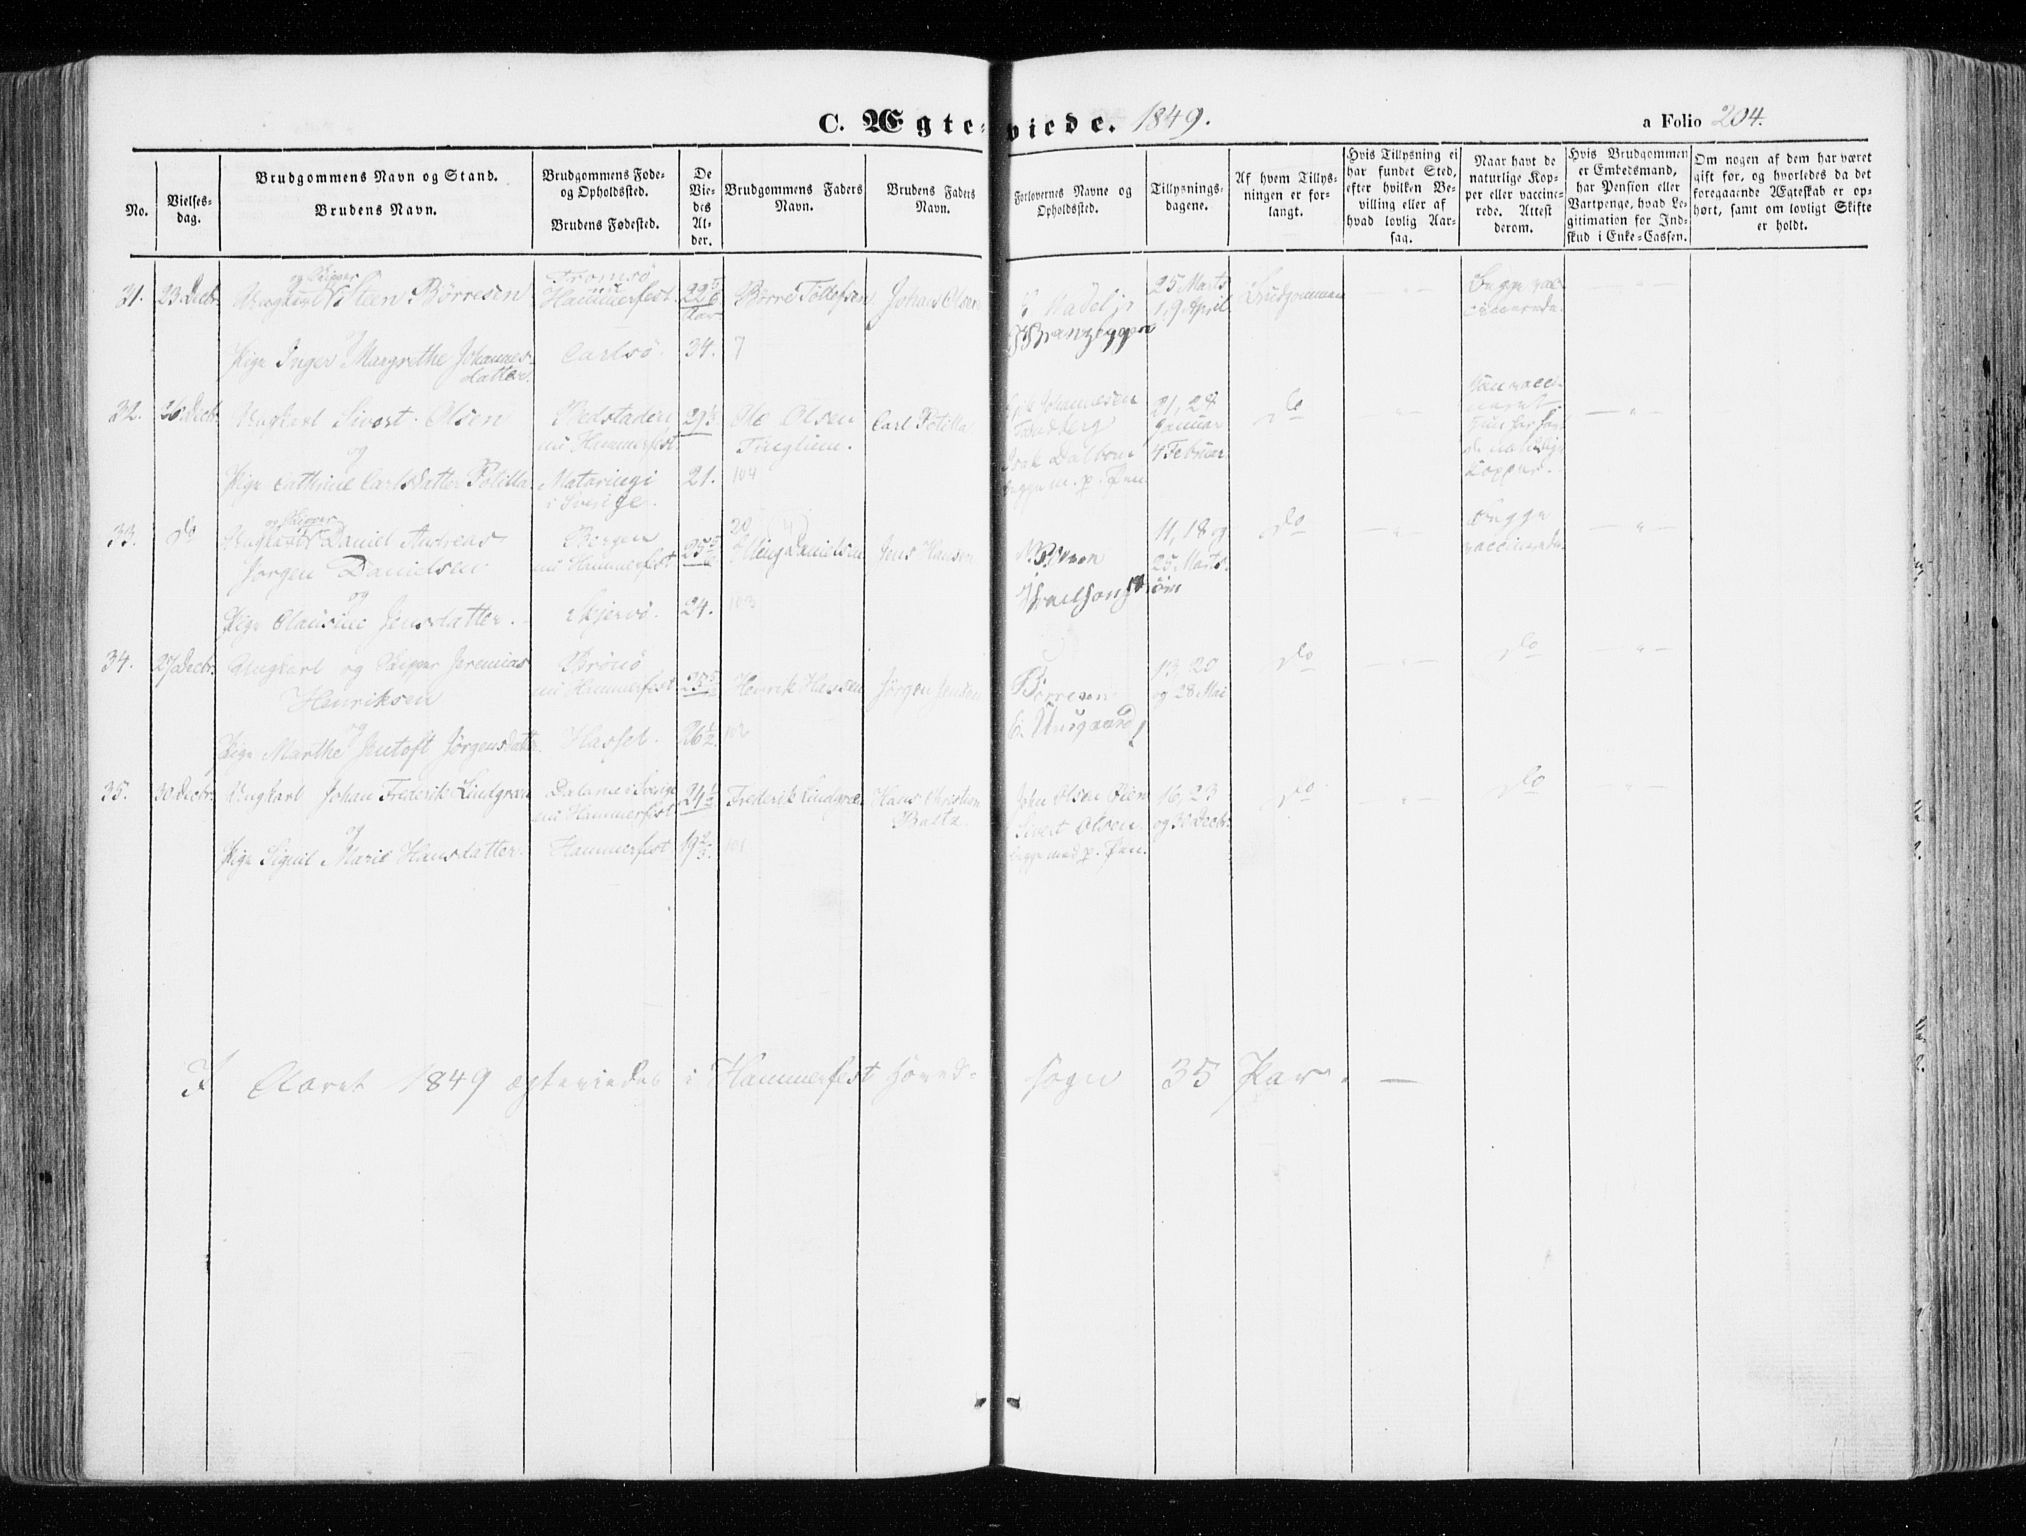 C. Ægte-viede. 1849.
a Folio 204.
No.
Vielses-
dag.
Brudgommens Navn og Stand.
Brudens Navn.
Brudgommens Føde-
og Opholdssted.
Brudens Fødested.
De
Vie-
des
Al-
der.
Brudgommens Faders
Navn.
Brudens Faders
Navn.
Forlovernes Navne og
Opholdssted.
Tillysnings-
dagene.
Af hvem Tillys-
ningen er for-
langt.
Hvis Tillysning ei
har fundet Sted,
efter hvilken Be-
villing eller af
hvad lovlig Aar-
sag.
Naar havt de
naturlige Kop-
per eller vaccine-
rede. Attest
derom.
Hvis Brudgommen
er Embedsmand,
har Pension eller
Vartpenge, hvad Le-
gitimation for Ind-
skud i Enke-Cassen.
Om nogen af dem har været
gift før, og hvorledes da det
foregaaende Ægteskab er op-
hørt, samt om lovligt Skifte
er holdt.
31. 23 Decbr.
og Skipper
Ungkarl Steen Børresen
og
Pige Inger Margrethe Johannes-
datter.
Tromsö
Hammerfest.
Carlsö.
34.
Børre Tollefsen
7
Johans Olsen
25 Marts
1, 9 April
Brudgommen
Begge vac-
cinerede.
32. 26 Decbr.
Ungkarl Sivert Olsen
og
Pige Cathrine Carlsdatter Fotilla
nu Hammerfest.
Mataringi
i Sverige.
21.
Ole Olsen
Tinglum.
104
Carl Fotilla
Johannesen
Dalbom
begge m. p. Pen
21, 28
Januar
4 Februar
do
Kopper.
33. do
og Skipper
Ungkarl Daniel Andreas
Jørgen Danielsen
og
Pige Olausine Jensdatter.
Bergen
nu Hammerfest
Skjervö.
24.
20
Danielsen
103
Jens Hansen
11, 18 og
25 Marts.
do
Begge
vaccinerede.
34. 27 Decbr.
Ungkarl og Skipper Jeremias
Henriksen
og
Pige Marthe Jentoft Jørgensdatter
Brönö
nu Hammerfest
Hassel.
26½
Henrik Hansen
102
Jørgen Jensen
Børresen
13, 20
og 28 Mai
do
do
35. 30 Decbr.
Ungkarl Johan Frederik Lindgren
og
Pige Signil Marie Hansdatter.
Dalarne i Sverige
nu Hammerfest
Hammerfest
19⅔.
Frederik Lindgren
101
Hans Christian
Baltz.
John Olsen Öien
Sivert Olsen.
begge med p. Pen.
16, 23
og 30 Decbr.
do
do
I Aaret 1849 ægteviedes i Hammerfest Hoved-
sogn 35 Par. —